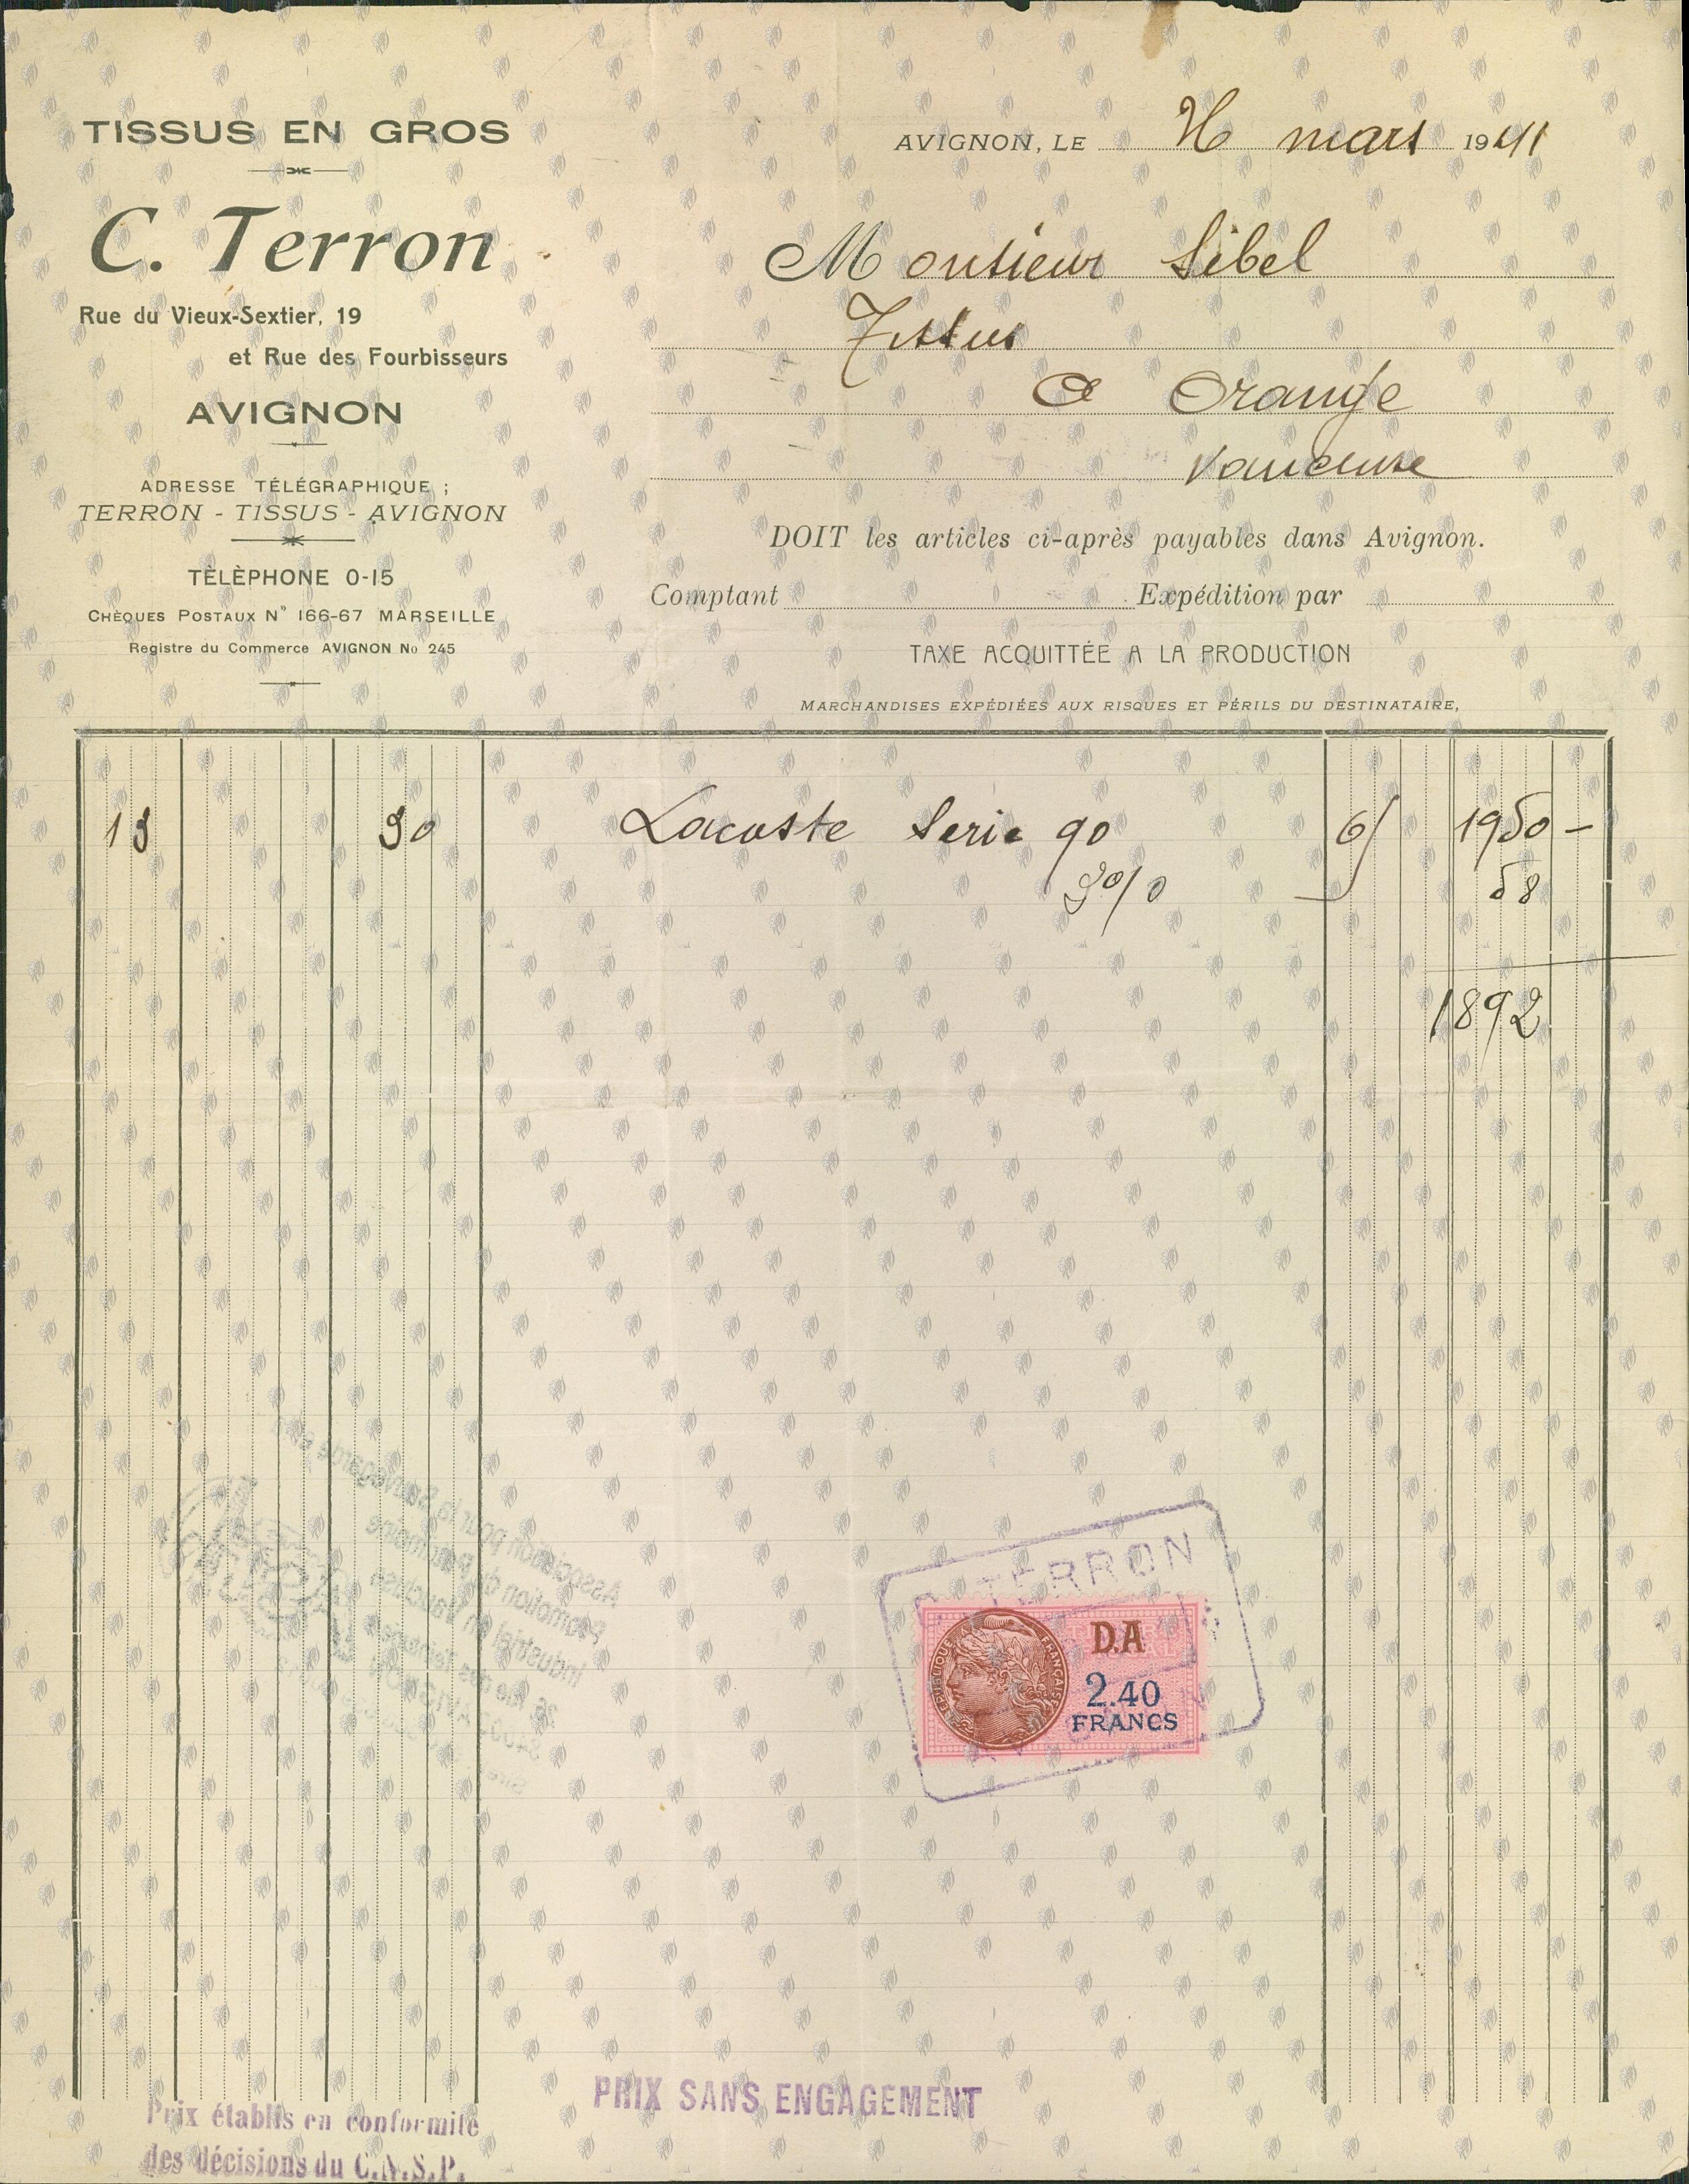 TISSUS EN GROS
C. Terron
Rue du Vieux-Sextier, 19
et Rue des Fourbisseurs
AVIGNON
ADRESSE TÉLÉGRAPHIQUE ;
TERRON - TISSUS - AVIGNON
TÈLÈPHONE 0-15
CHÈQUES POSTAUX N° 166-67 MARSEILLE
Registre du Commerce AVIGNON No 245
AVIGNON, LE 26 mars 1941
Monsieur Sibel
Tissus
a Orange
Vaucluse
DOIT les articles ci-après payables dans Avignon.
Comptant Expédition par
TAXE ACQUITTÉE A LA PRODUCTION
MARCHANDISES EXPÉDIÉES AUX RISQUES ET PÉRILS DU DESTINATAIRE,
13 30 Lacoste Serie 90 6/ 1950 -
3% 58
1892
Association pour la Sauvegarde et la
Promotion du Patrimoine
Industriel en Vaucluse
TERRON
RÉPUBLIQUE FRANÇAISE
D.A
2.40
FRANCS
PRIX SANS ENGAGEMENT
Prix établis en conformité
des décisions du C.N.S.P.